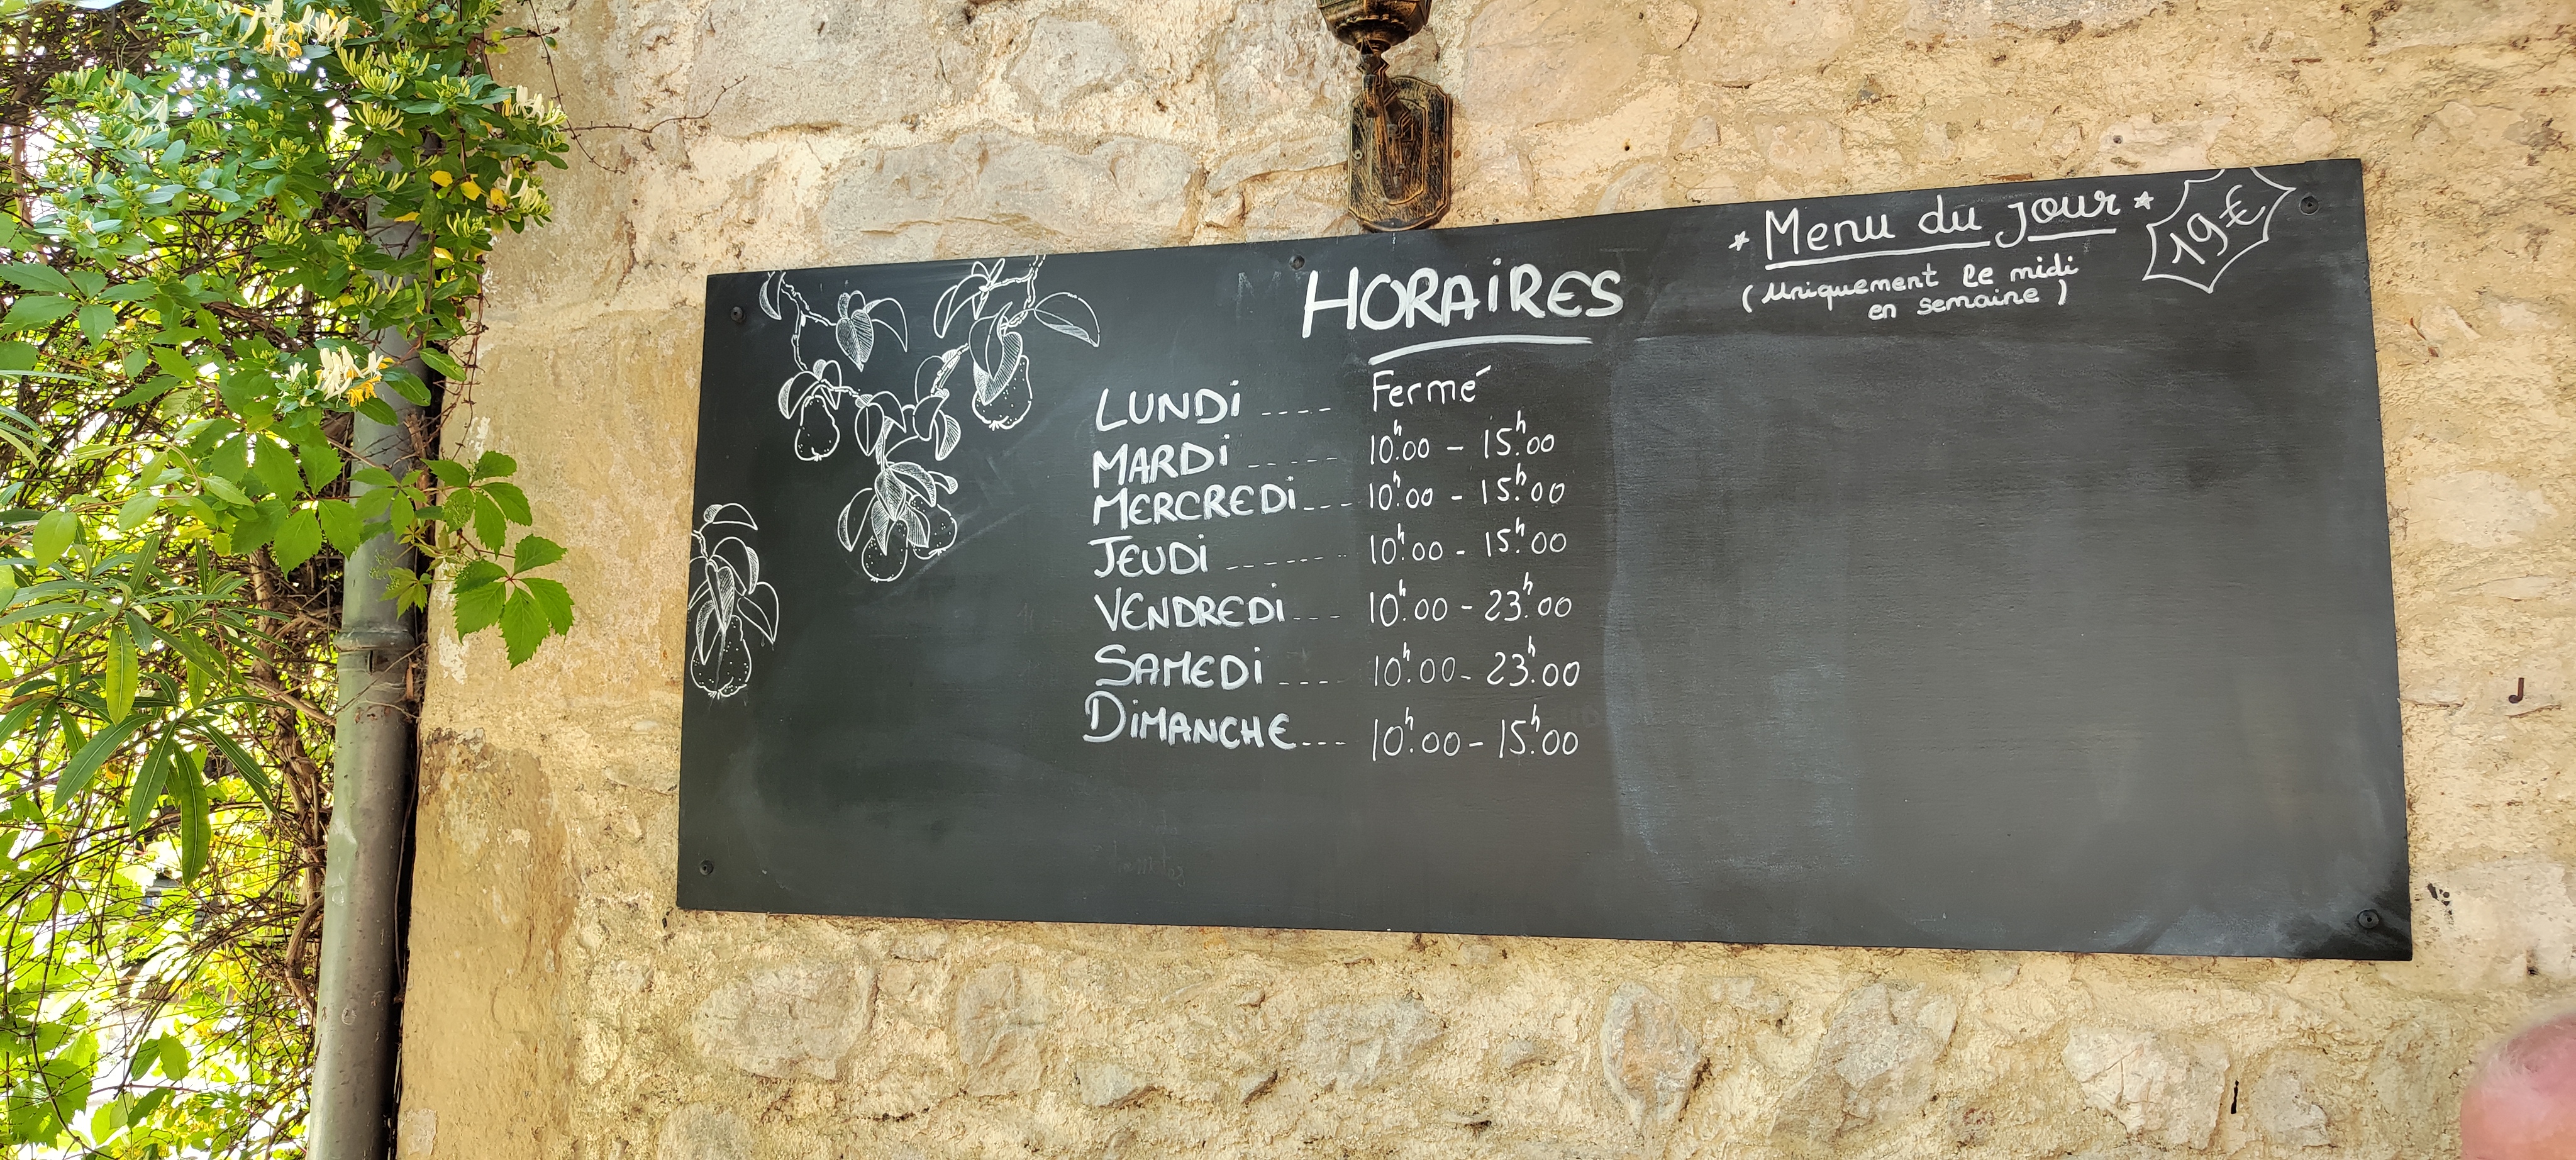 HORAIRES
LUNDI ---- Fermé
MARDI ----- 10h00 - 15h00
MERCREDI --- 10h00 - 15h00
JEUDI ------ 10h00 - 15h00
VENDREDI --- 10h00 - 23h00
SAMEDI ---- 10h00 - 23h00
DIMANCHE --- 10h00 - 15h00
* Menu du jour *
(Uniquement le midi
en semaine)
19€